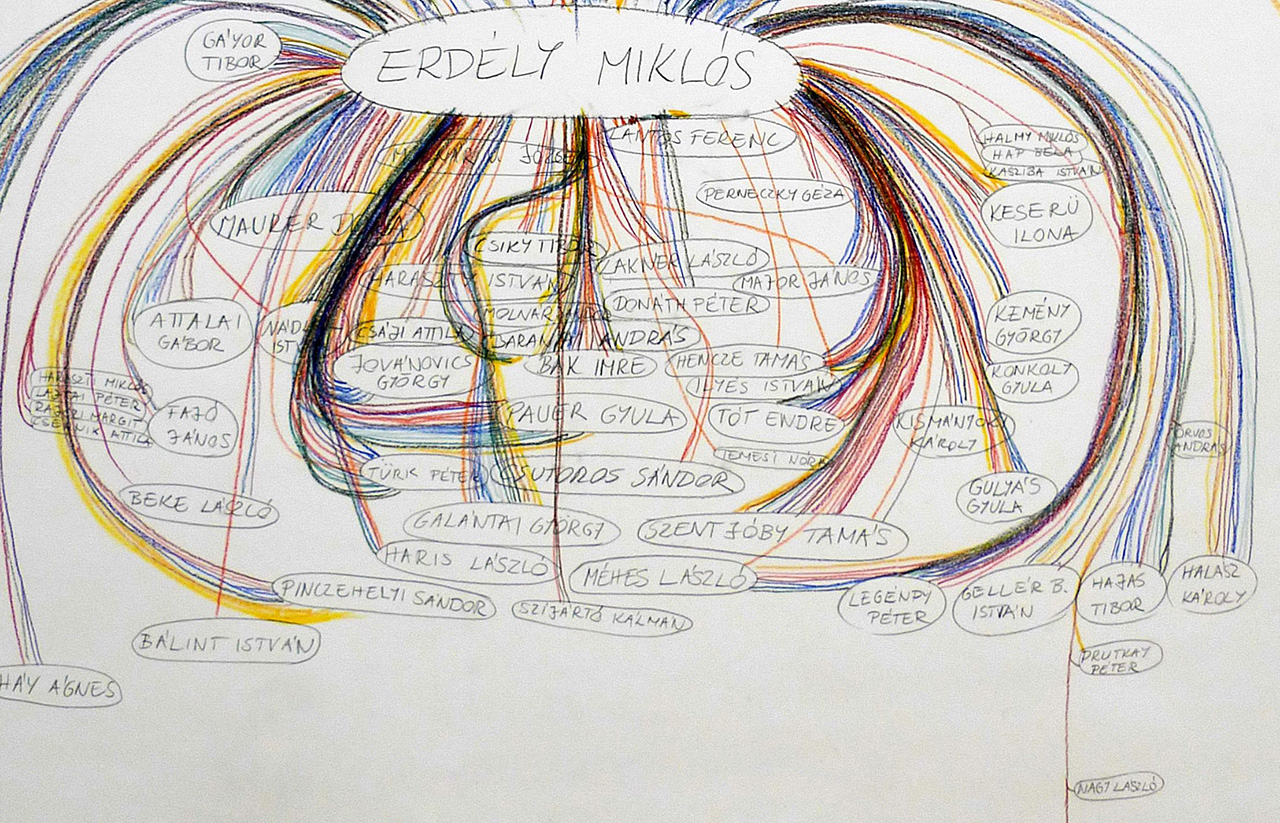 ERDÉLY MIKLÓS
GÁYOR
TIBOR
LANTOS FERENC
HALMY MIKLÓS
HAP BÉLA
KASZIBA ISTVÁN
PERNECZKY GÉZA
MAURER DÓRA
KESERÜ
ILONA
CSIKY TIBOR
LAKNER LÁSZLÓ
ISTVÁN
MAJOR JÁNOS
DONÁTH PÉTER
ATTALAI
GÁBOR
KEMÉNY
GYÖRGY
CSÁJI ATTILA
ANDRÁS
JOVÁNOVICS
GYÖRGY
BAK IMRE
HENCZE TAMÁS
ILYÉS ISTVÁN
KONKOLY
GYULA
HARASZTI MIKLÓS
LAJTAI PÉTER
RAJCZI MARGIT
CSERNIK ATTILA
FAJÓ
JÁNOS
PAUER GYULA
TÓT ENDRE
KISMÁNYOKY
KÁROLY
ORVOS
ANDRÁS
TEMESI NÓRA
TÜRK PÉTER
CSUTOROS SÁNDOR
BEKE LÁSZLÓ
GULYÁS
GYULA
GALÁNTAI GYÖRGY
SZENTJÓBY TAMÁS
HARIS LÁSZLÓ
MÉHES LÁSZLÓ
PINCZEHELYI SÁNDOR
SZIJÁRTÓ KÁLMÁN
LEGÉNDY
PÉTER
GELLÉR B.
ISTVÁN
HAJAS
TIBOR
HALÁSZ
KÁROLY
BÁLINT ISTVÁN
PRUTKAY
PÉTER
HÁY ÁGNES
NAGY LÁSZLÓ